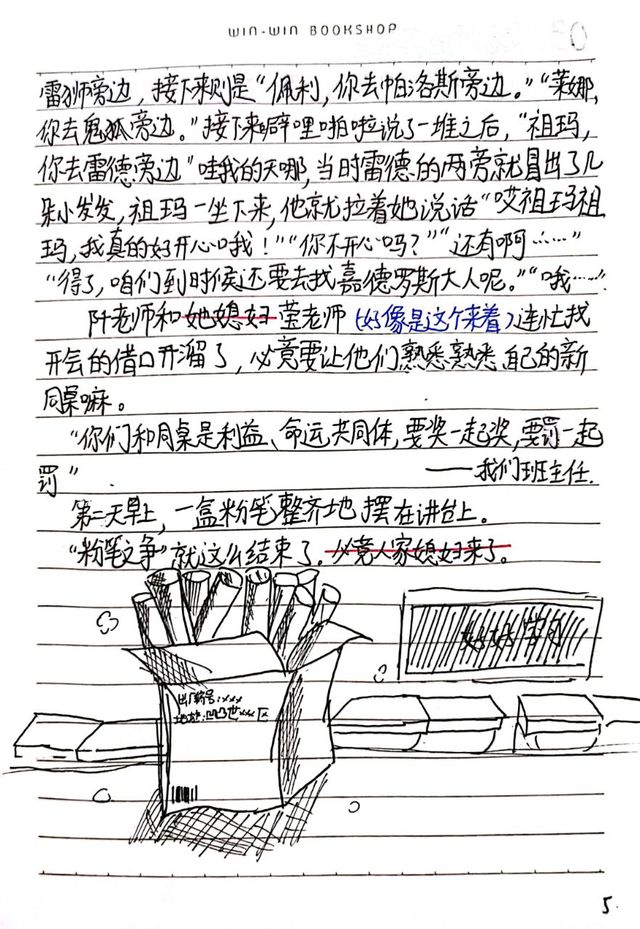 WIN-WIN BOOKSHOP
雷狮旁边，接下来则是“佩利，你去帕洛斯旁边。”“莱娜，
你去鬼狐旁边。”接下来噼哩啪啦说了一堆之后，“祖玛，
你去雷德旁边”哇我的天哪，当时雷德的两旁就冒出了几
朵小发发，祖玛一坐下来，他就拉着她说话“哎祖玛祖
玛，我真的好开心哦！”“你不开心吗？”“还有啊……”
“得了，咱们到时候还要去找嘉德罗斯大人呢。”“哦……”
阡老师和她媳妇莹老师（好像是这个来着）连忙找
开会的借口开溜了，必竟要让他们熟悉熟悉自己的新
同桌嘛。
“你们和同桌是利益、命运共同体，要奖一起奖，要罚一起
罚”
——我们班主任.
第二天早上，一盒粉笔整齐地摆在讲台上。
“粉笔之争”就这么结束了。必竟人家媳妇来了。
好好学习
出厂编号:xxx
地址:凹凸世xx区
5